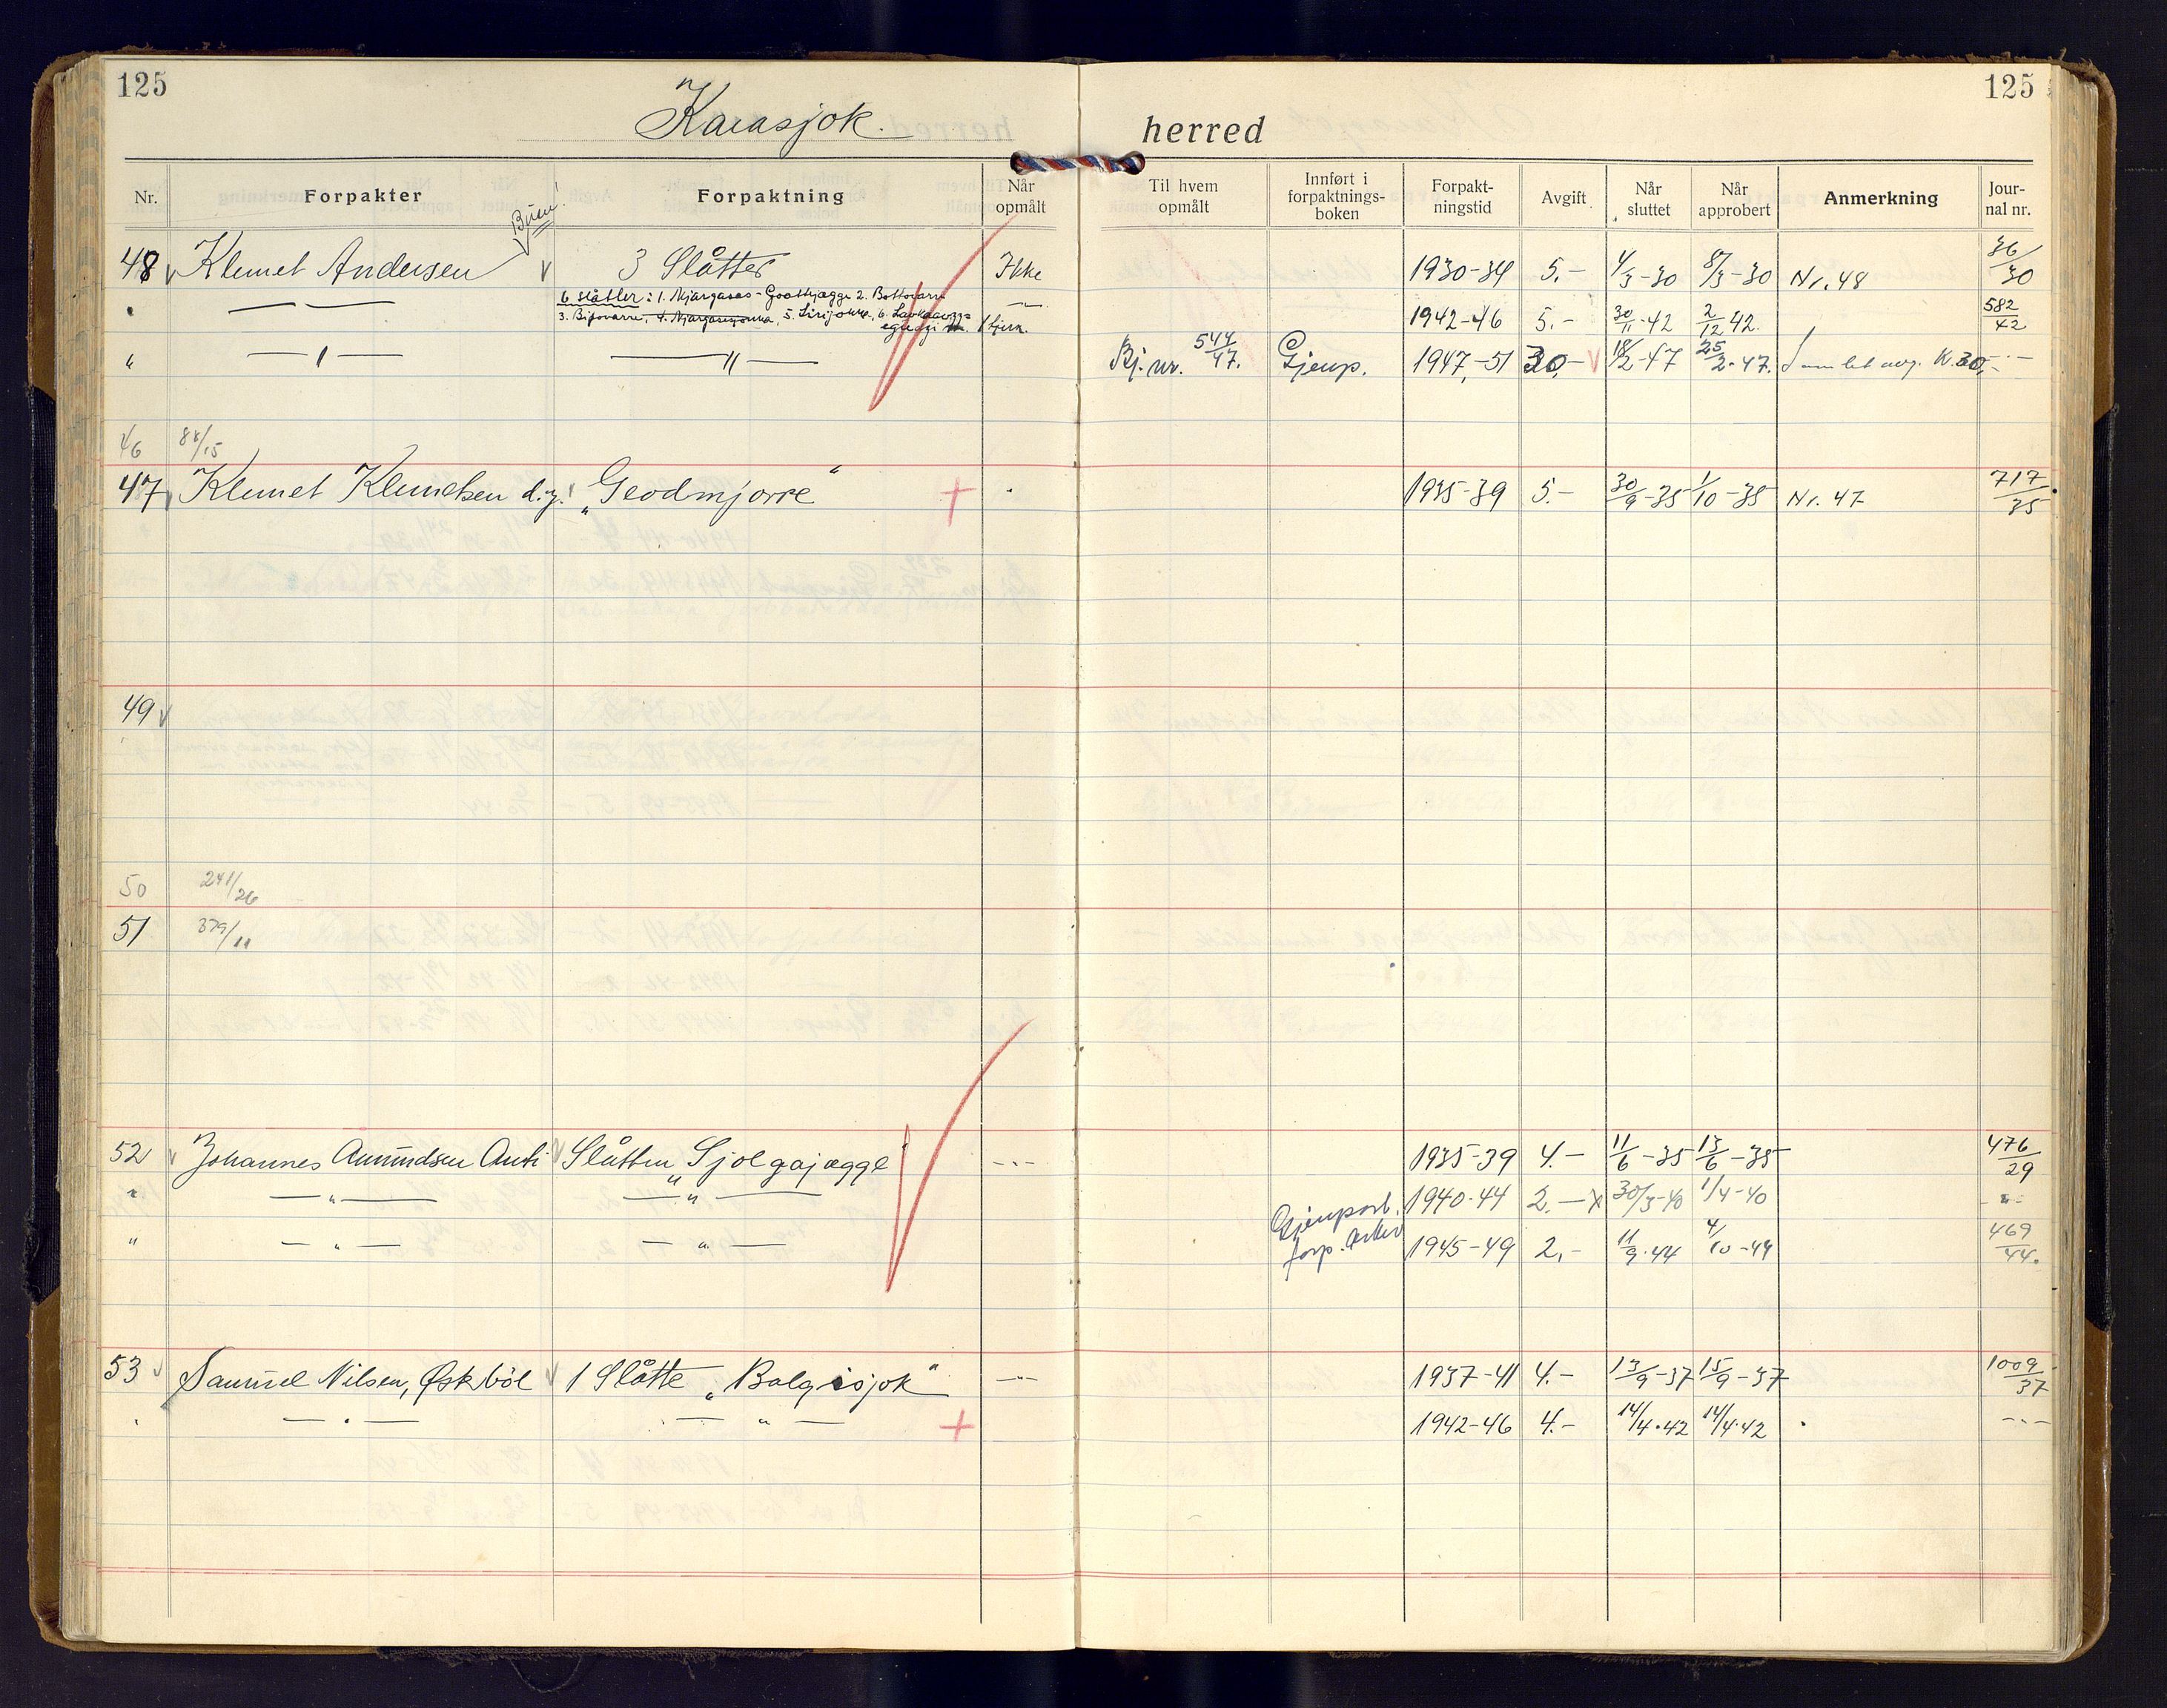 125 125
Karasjok. herred
Nr. Forpakter Forpaktning Når opmålt Til hvem opmålt Innført i forpaktnings-boken Forpakt-ningstid Avgift Når sluttet Når approbert Anmerkning Jour-nal nr.
48 Klemet Andersen 3 Slåtter Ikke 1930-34 5.- 4/3-30 8/3-30 Nr. 48 36/30
" — — 6 slåtter: 1. Njargasas - Goatkjægge 2. Bottovarre — 1942-46 5.- 30/11-42 2/12 42. 582/42
3. Bipovarre, 4. Njargasgjokka, 5. Sirijokka, 6.
" — " — — " — Bj. nr. 544/47. Gjenp. 1947-51 30,- 18/2-47 25/2-47. Samlet avg. Kr. 30,- -"-
46 88/15
47 Klemet Klemetsen d.y. "Geodmjorre" " 1935-39 5.- 30/9-35 1/10-35 Nr. 47 717/35
49
50 241/26
51 379/11
52 Johannes Amundsen Anti Slåtten "Sjolgajægge -"- 1935-39 4.- 11/6-35 13/6-35 476/29
" — " — — " — 1940-44 2.- x 30/3-40 1/4-40 -"-
" — " — — " — Gjenpart. forp. arkiv 1945-49 2,- 11/9-44 4/10-44 469/44.
53 Samuel Nilsen, Øskbøl 1 Slåtte "Bolgisjok" -"- 1937-41 4.- 13/9-37 15/9-37 1009/37
" — " — — " — + 1942-46 4.- 14/4-42 14/4-42 -"-